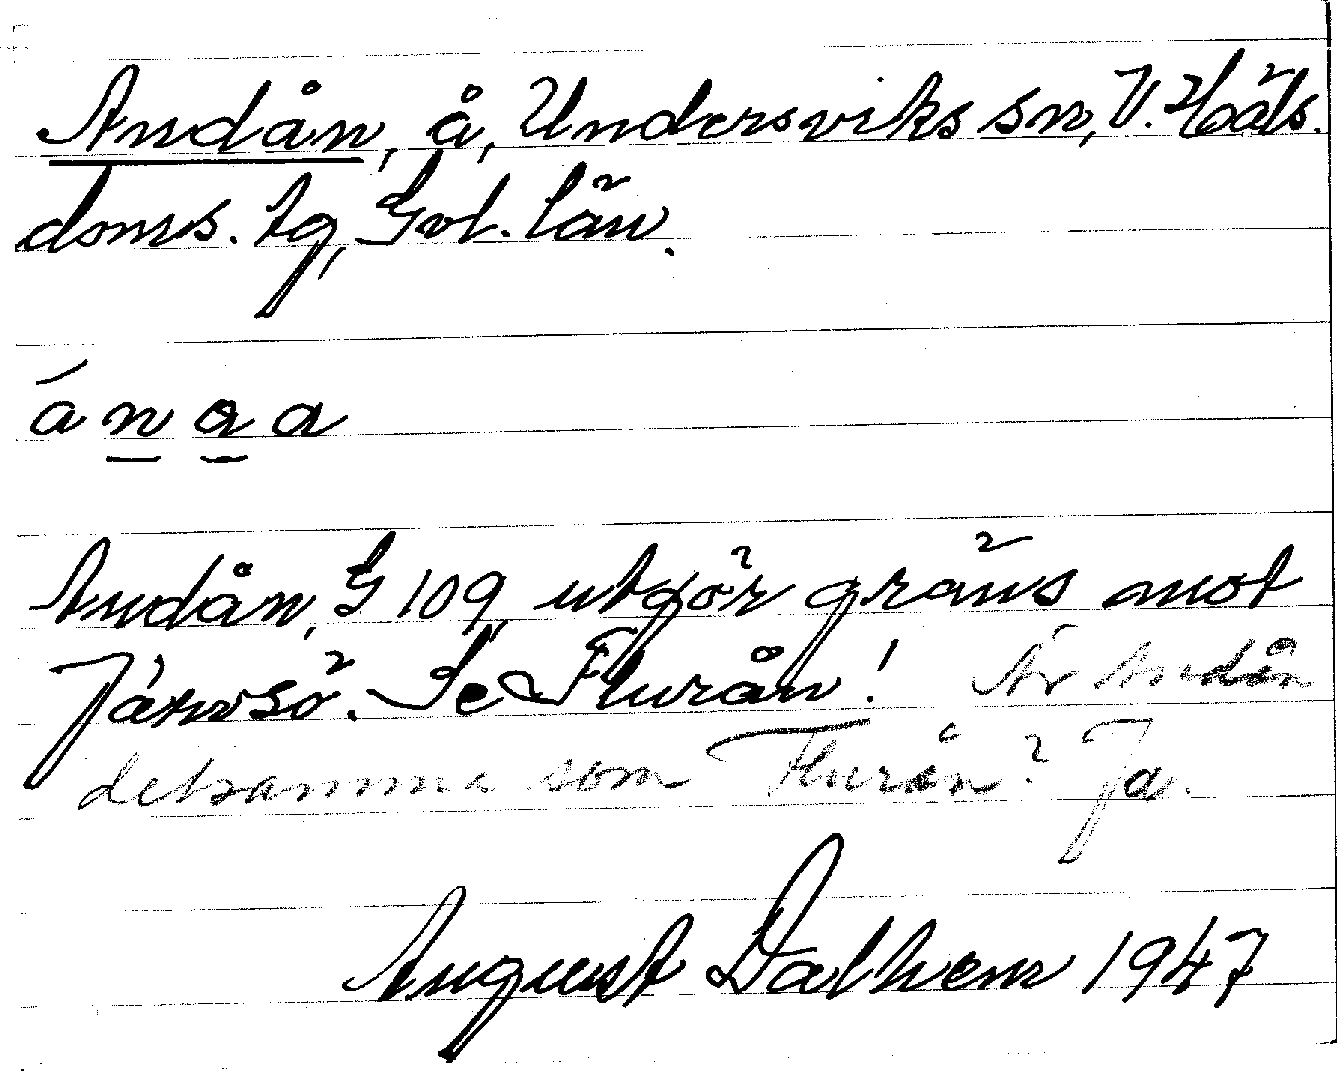 Andån, å, Undersviks sn, V. Häls.
doms. tg, Gvl. län.
ánꞷa
Andån, G 109, utgör gräns mot
Järvsö. Se Flurån! Är Andån
detsamma som Flurån? Ja.
August Dalhem 1947